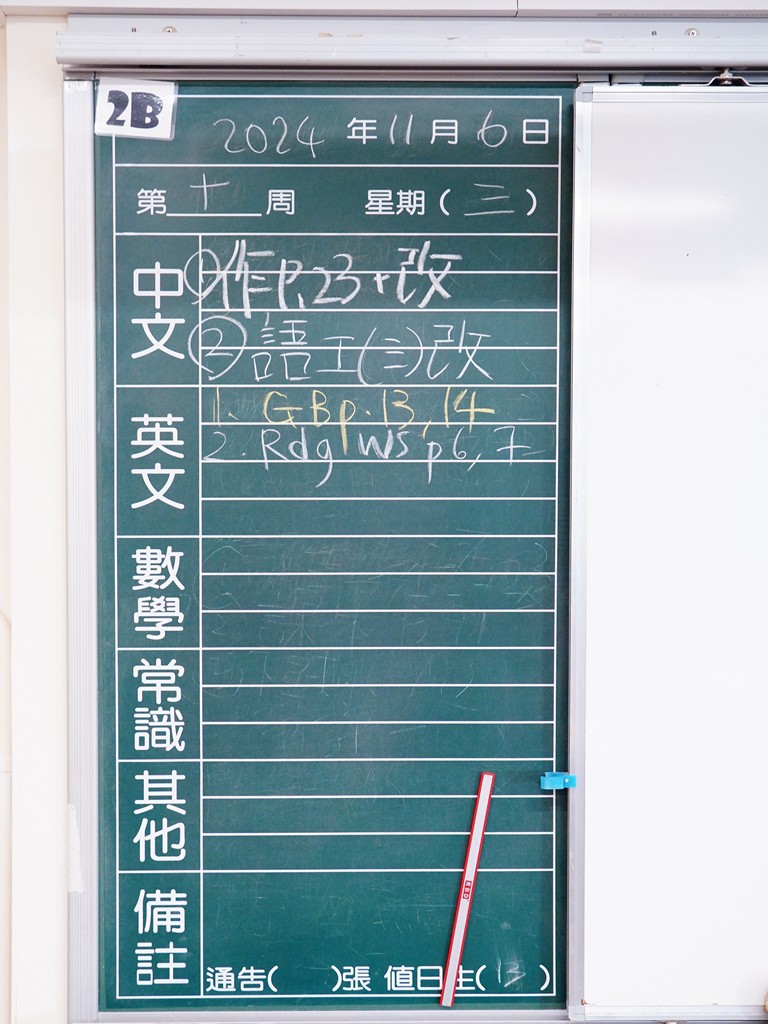 2B
2024 年 11 月 6 日
第 十 周 星期( 三 )
中文
① 作 P.23 + 改
② 語工(三)改
英文
1. GB p.13,14
2. Rdg WS p6,7
數學
常識
其他
備註
通告( )張 值日生( 13 )